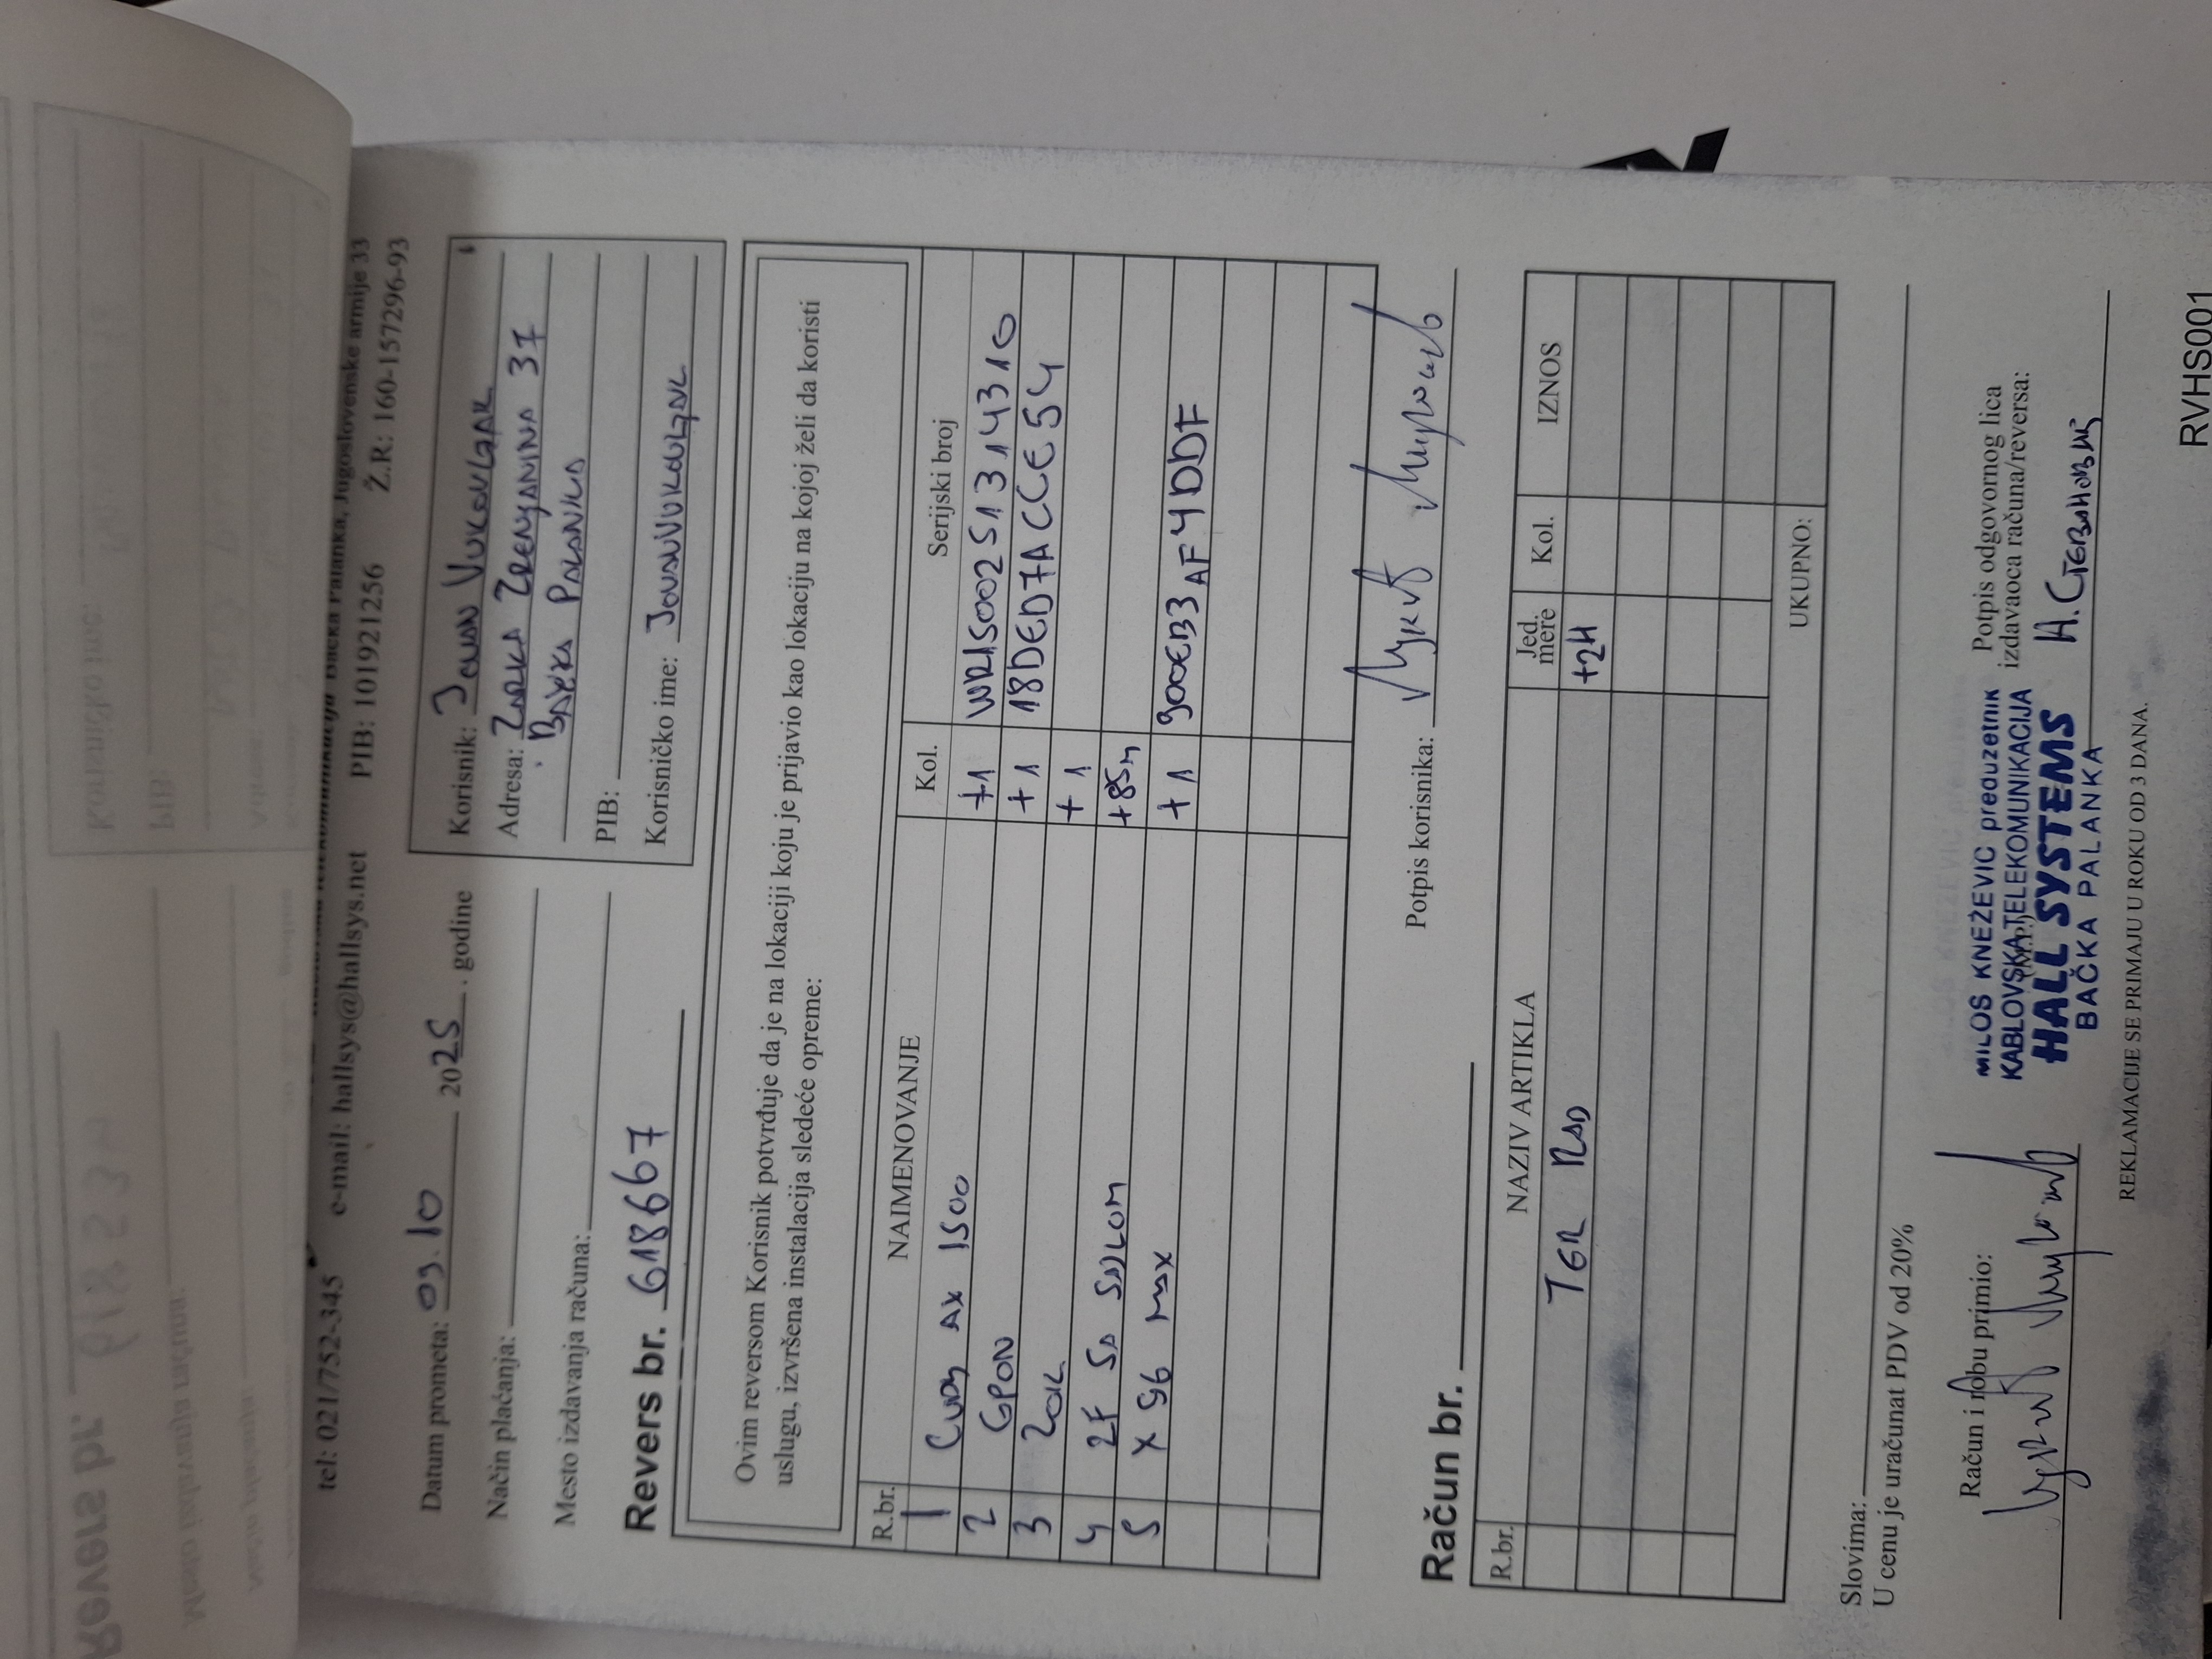 Bačka Palanka, Jugoslovenske armije 33
tel: 021/752-345 e-mail: hallsys@hallsys.net PIB: 101921256 Ž.R: 160-157296-93
Datum prometa: 09.10 2025. godine
Način plaćanja:
Mesto izdavanja računa:
Revers br. 618667
Korisnik: JOVAN VUKOVLJAK
Adresa: ŽARKA ZRENJANINA 37
BAČKA PALANKA
PIB:
Korisničko ime: JOVANVUKOVLJAK
Ovim reversom Korisnik potvrđuje da je na lokaciji koju je prijavio kao lokaciju na kojoj želi da koristi
uslugu, izvršena instalacija sledeće opreme:
R.br. NAIMENOVANJE Kol. Serijski broj
1 CUDY AX 1500 +1 WR1500251314310
2 GPON +1 18DED7ACCE54
3 ZOK +1
4 2F SA SAJLOM +85m
5 X 96 MAX +1 900EB3AF4DDF
Potpis korisnika:
Račun br.
R.br. NAZIV ARTIKLA Jed. mere Kol. IZNOS
TER RAD +2H
UKUPNO:
Slovima:
U cenu je uračunat PDV od 20%
Račun i robu primio:
MILOŠ KNEŽEVIĆ preduzetnik
KABLOVSKA TELEKOMUNIKACIJA
HALL SYSTEMS
BAČKA PALANKA
Potpis odgovornog lica
izdavaoca računa/reversa:
Н. Стевановић
REKLAMACIJE SE PRIMAJU U ROKU OD 3 DANA.
RVHS001